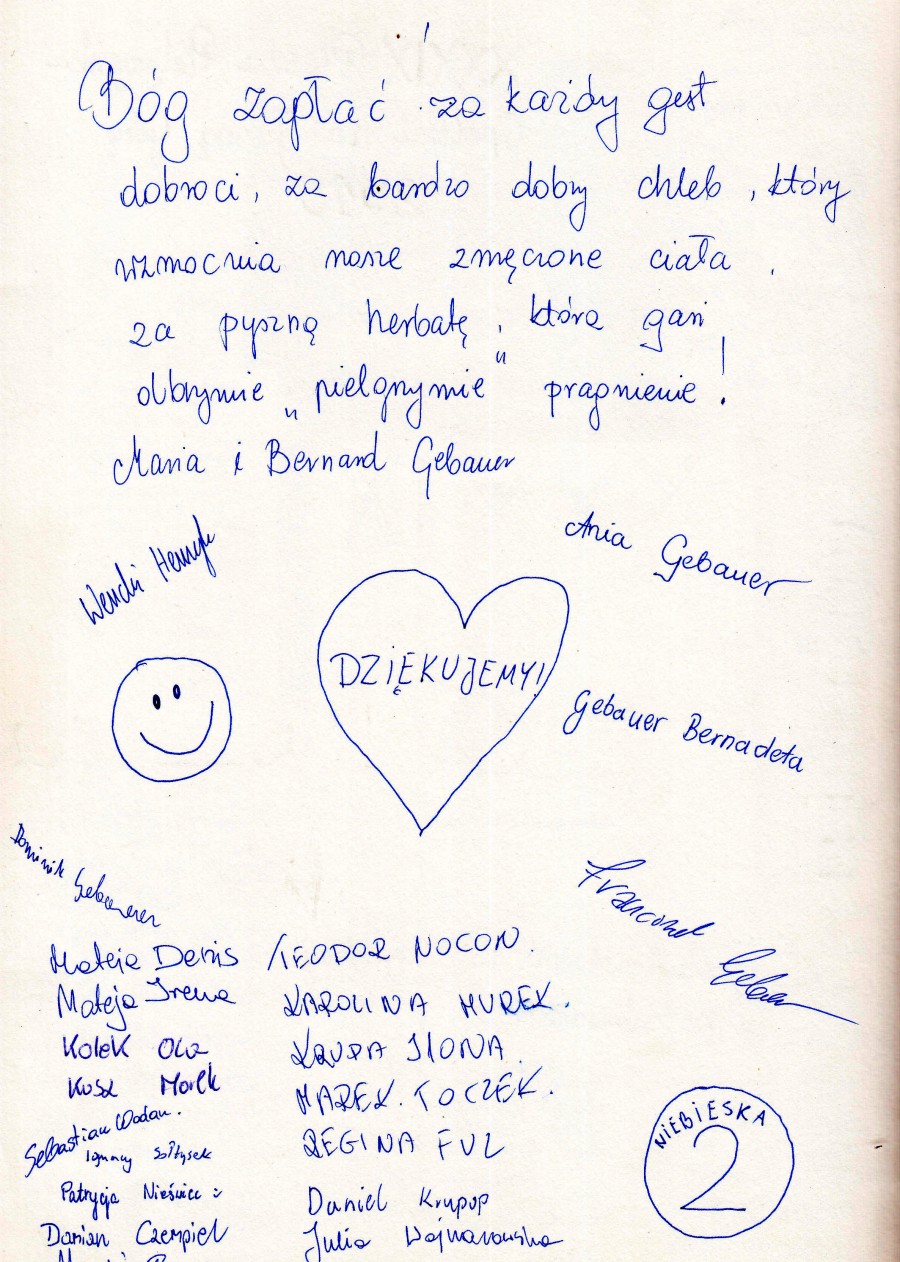 Bóg zapłać za każdy gest
dobroci, za bardzo dobry chleb, który
wzmocnia nasze zmęczone ciała,
za pyszną herbatę, która gasi
olbrzymie „pielgrzymie" pragnienie!
Maria i Bernard Gebauer
Ania Gebauer
Henryk
DZIĘKUJEMY!
Gebauer Bernadeta
Dominik Gebauer
Franciszek Gebauer
Mateja Denis
TEODOR NOCOŃ.
Mateja Irena
KAROLINA MUREK.
Kolek Ola
KRUPA ILONA
Kusz Marek
MAREK TOCZEK.
Sebastian
Ignacy Sołtysek
REGINA FUL
NIEBIESKA
2
Patrycja
Daniel Krupop
Damian Czempiel
Julia Wojnarowska